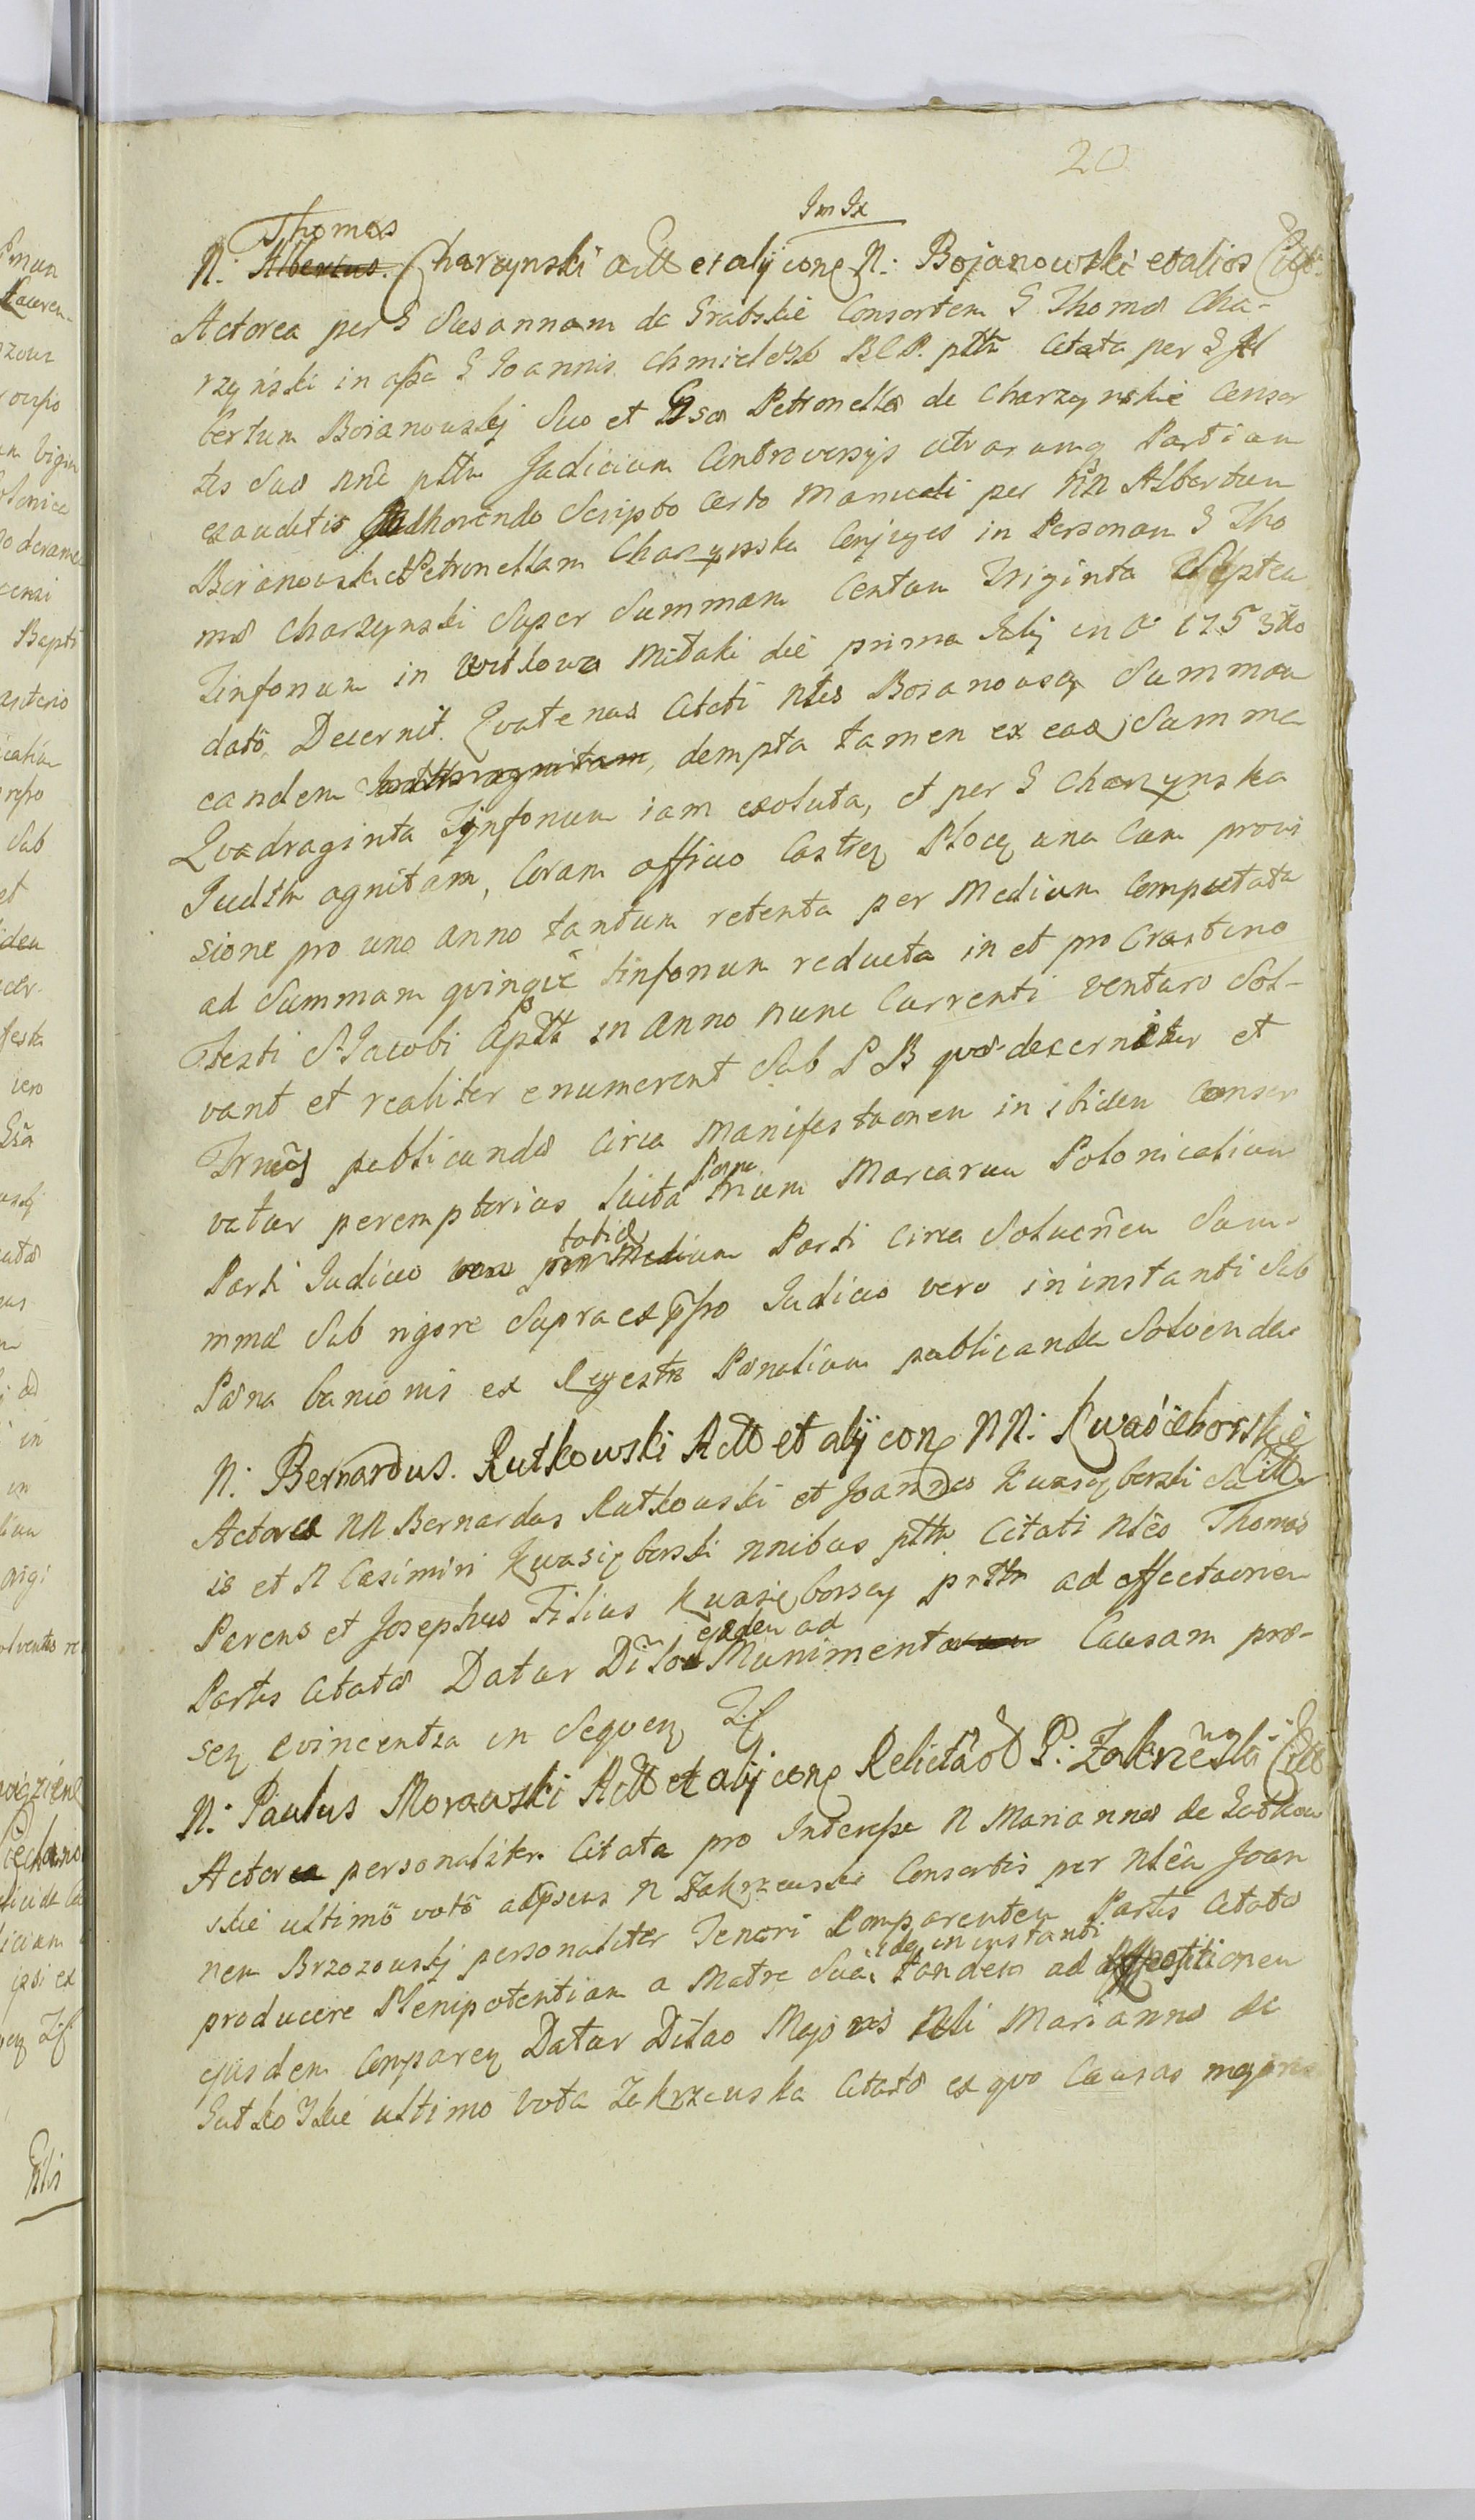 20
Im Ix
Thomas
N: Albertus. Charzynski Act et alij cong N: Bojanowski et alios Citt
Actorea per G Susannam de Grabskie Consortem G Thomæ Cha-
rzyński in assa G Joannis Chmieleski B C P. ptta Citata per G Al
bertum Boianowskj suo et Gsæ Petronellæ de Charzynskie Consor
tis suæ nnē pttm Judicium Controversijs utrarumq Partium
exauditis Adhærendo Scripto Certo Manuali per NN Albertum
Boianowski et Petronellam Charzynska Conjuges in Personam G Tho
mæ Charzynski super Summam Centum Triginta Septem
Tinfonum in Witkowo Mitaki die prima Julij in Ao 1753tio
dato. Decernit. Quatenus Citati Ntes Boianowscy Summam
eandem Juditt agnitam, dempta tamen ex eas Summa
Quadraginta Tynfonum iam exoluta, et per G Charzynska
Judittr agnitam, Coram officio Castren Plocen una Cum provi
sione pro uno Anno tantum retenta per Medium Computata
ad Summam quinque tinfonum reducta in et pro Crastino
Festi S. Jacobi Aptti in Anno nunc Currenti venturo Sol-
vant et realiter enumerent Sub P B quæ decernitur et
Trmēs publicandæ Circa Manifestaonem in ibidem Conser
vatur peremptorius Luita Pœna trium Marcarum Polonicalium
Parti Judicio vero per Medium totidē Parti Circa Solucnem Sum-
mmæ Sub rigore Supra exprsso Judicio vero in instanti Sub
Pœna banionis ex Regestro Pœnalium publicanda Solvenda
N: Bernardus. Rutkowski Act et alij cong NN: Kwasieborskie
Citt
Actores NN Bernardus Rutkowski et Joannes Kwasięborski Su
is et N Casimiri Kwasięborski nnibus pttr Citati Ntes Thomas
Parens et Josephus Filius Kwasięborscy prttr ad affectaonem
Partis Citatæ Datur Dilo eadem ad Munimentorum Causam præ-
sen evincentia in Sequen Tf
N: Paulus Morawski Act et alij cong Relictâ ol P: Zakrzewski Citt
Actorea personaliter Citata pro Interesse N Mariannæ de Gutkow
skie ultimō votō adpsens N Zakrzewski Consortis per Ntem Joan
nem Brzozowskj personaliter Teneri Comparentem Partis Citatæ
producere Plenipotentiam a Matre Suâ idq in instanti Tandem ad affectationem
ejusdem Comparen Datur Dilao Majoris Nbli Mariannæ de
Gutkoskie ultimo vota Zakrzewska Citatæ ex quo Causas majoris